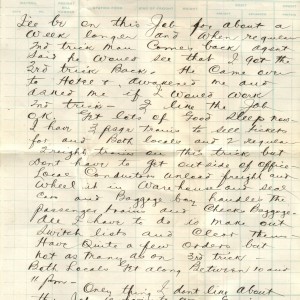 I'll be on this Job for about a
Week longer and when regular
2nd trick man comes back agent
Said he would see that I got the
3rd trick Back. He came over
to Home & awakened me and
asked me if I would work
2nd trick - I like the Job
OK. Get lots of Good sleep now -
I have 3 psgr trains to sell tickets
for and Both Locals and 2 regular
freight trains on this trick but
Dont have to get out side of office -
Local Conductors unload freight and
Wheel it in Warehouse and seal
Cars and Baggage boy handles the
Passenger trains and Checks Baggage
All I have to do is make out
Switch lists and Clear them
Have Quite a few orders but
not as many as on 3rd trick -
Both Locals get along Between 10 and
11 Pm -
Only thing I dont like about